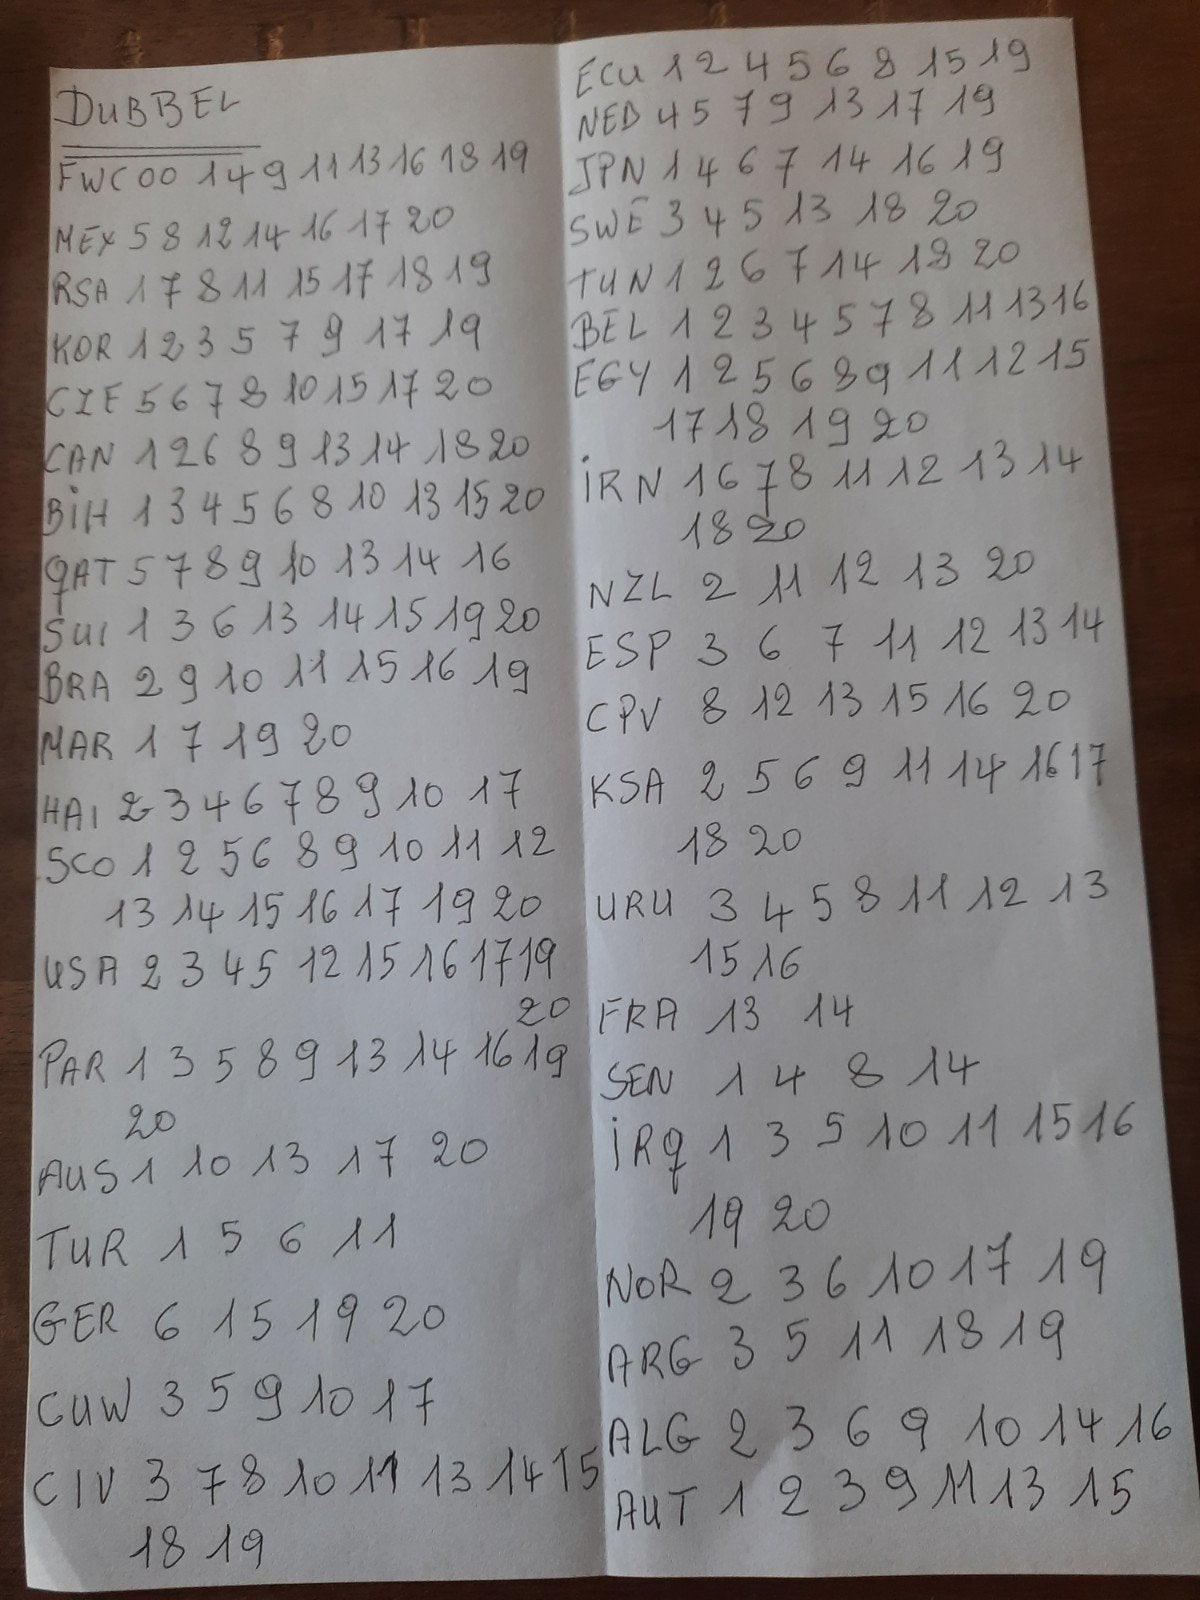 DUBBEL
FWC 00 1 4 9 11 13 16 18 19
MEX 5 8 12 14 16 17 20
RSA 1 7 8 11 15 17 18 19
KOR 1 2 3 5 7 9 17 19
CZE 5 6 7 8 10 15 17 20
CAN 1 2 6 8 9 13 14 18 20
BIH 1 3 4 5 6 8 10 13 15 20
QAT 5 7 8 9 10 13 14 16
SUI 1 3 6 13 14 15 19 20
BRA 2 9 10 11 15 16 19
MAR 1 7 19 20
HAI 2 3 4 6 7 8 9 10 17
SCO 1 2 5 6 8 9 10 11 12
13 14 15 16 17 19 20
USA 2 3 4 5 12 15 16 17 19
20
PAR 1 3 5 8 9 13 14 16 19
20
AUS 1 10 13 17 20
TUR 1 5 6 11
GER 6 15 19 20
CUW 3 5 9 10 17
CIV 3 7 8 10 11 13 14 15
18 19
ECU 1 2 4 5 6 8 15 19
NED 4 5 7 9 13 17 19
JPN 1 4 6 7 14 16 19
SWE 3 4 5 13 18 20
TUN 1 2 6 7 14 18 20
BEL 1 2 3 4 5 7 8 11 13 16
EGY 1 2 5 6 8 9 11 12 15
17 18 19 20
IRN 1 6 7 8 11 12 13 14
18 20
NZL 2 11 12 13 20
ESP 3 6 7 11 12 13 14
CPV 8 12 13 15 16 20
KSA 2 5 6 9 11 14 16 17
18 20
URU 3 4 5 8 11 12 13
15 16
FRA 13 14
SEN 1 4 8 14
IRQ 1 3 5 10 11 15 16
19 20
NOR 2 3 6 10 17 19
ARG 3 5 11 18 19
ALG 2 3 6 9 10 14 16
AUT 1 2 3 9 11 13 15